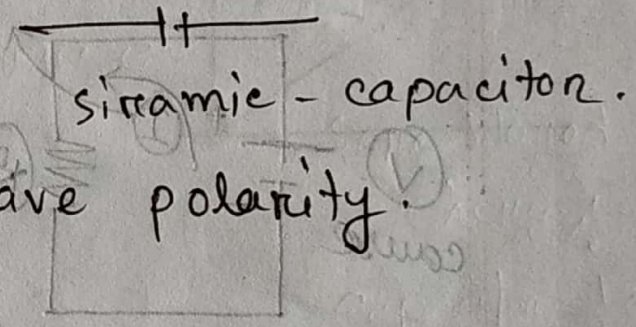 sirramic - capacitor.
ave polarity.